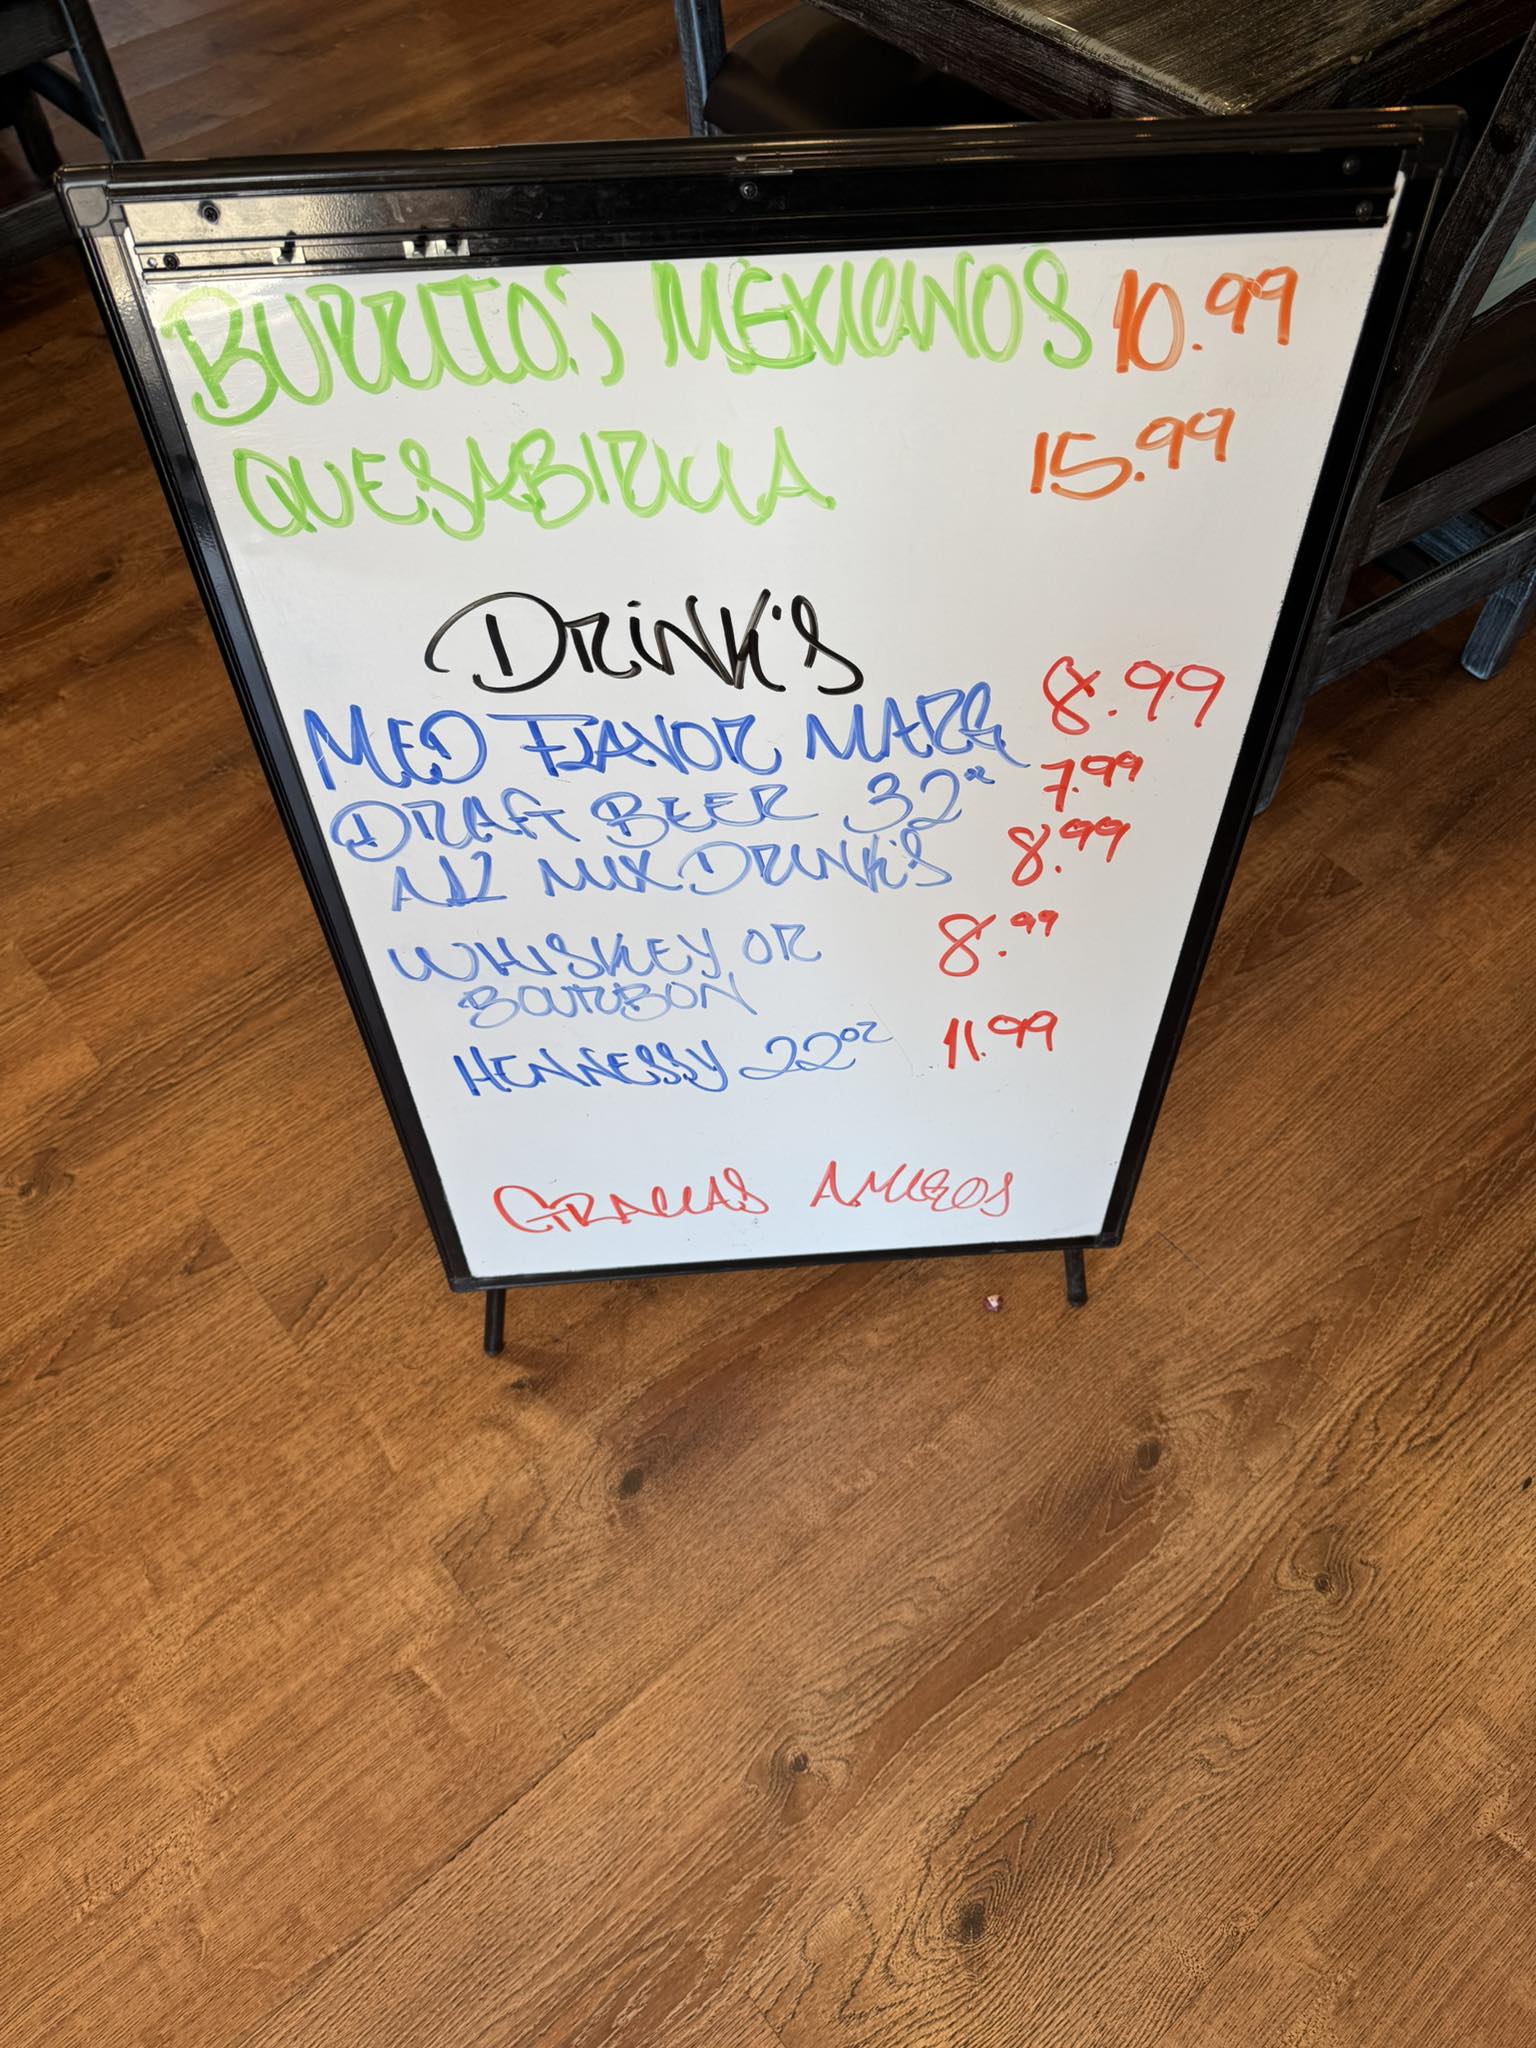 BURRITO'S, MEXICANOS 10.99
QUESABIRRIA 15.99
DRINK'S
MED FLAVOR MARG 8.99
DRAFT BEER 32oz 7.99
ALL MIX DRINK'S 8.99
WHISKEY OR 8.99
BOURBON
HENNESSY 22oz 11.99
GRACIAS AMIGOS